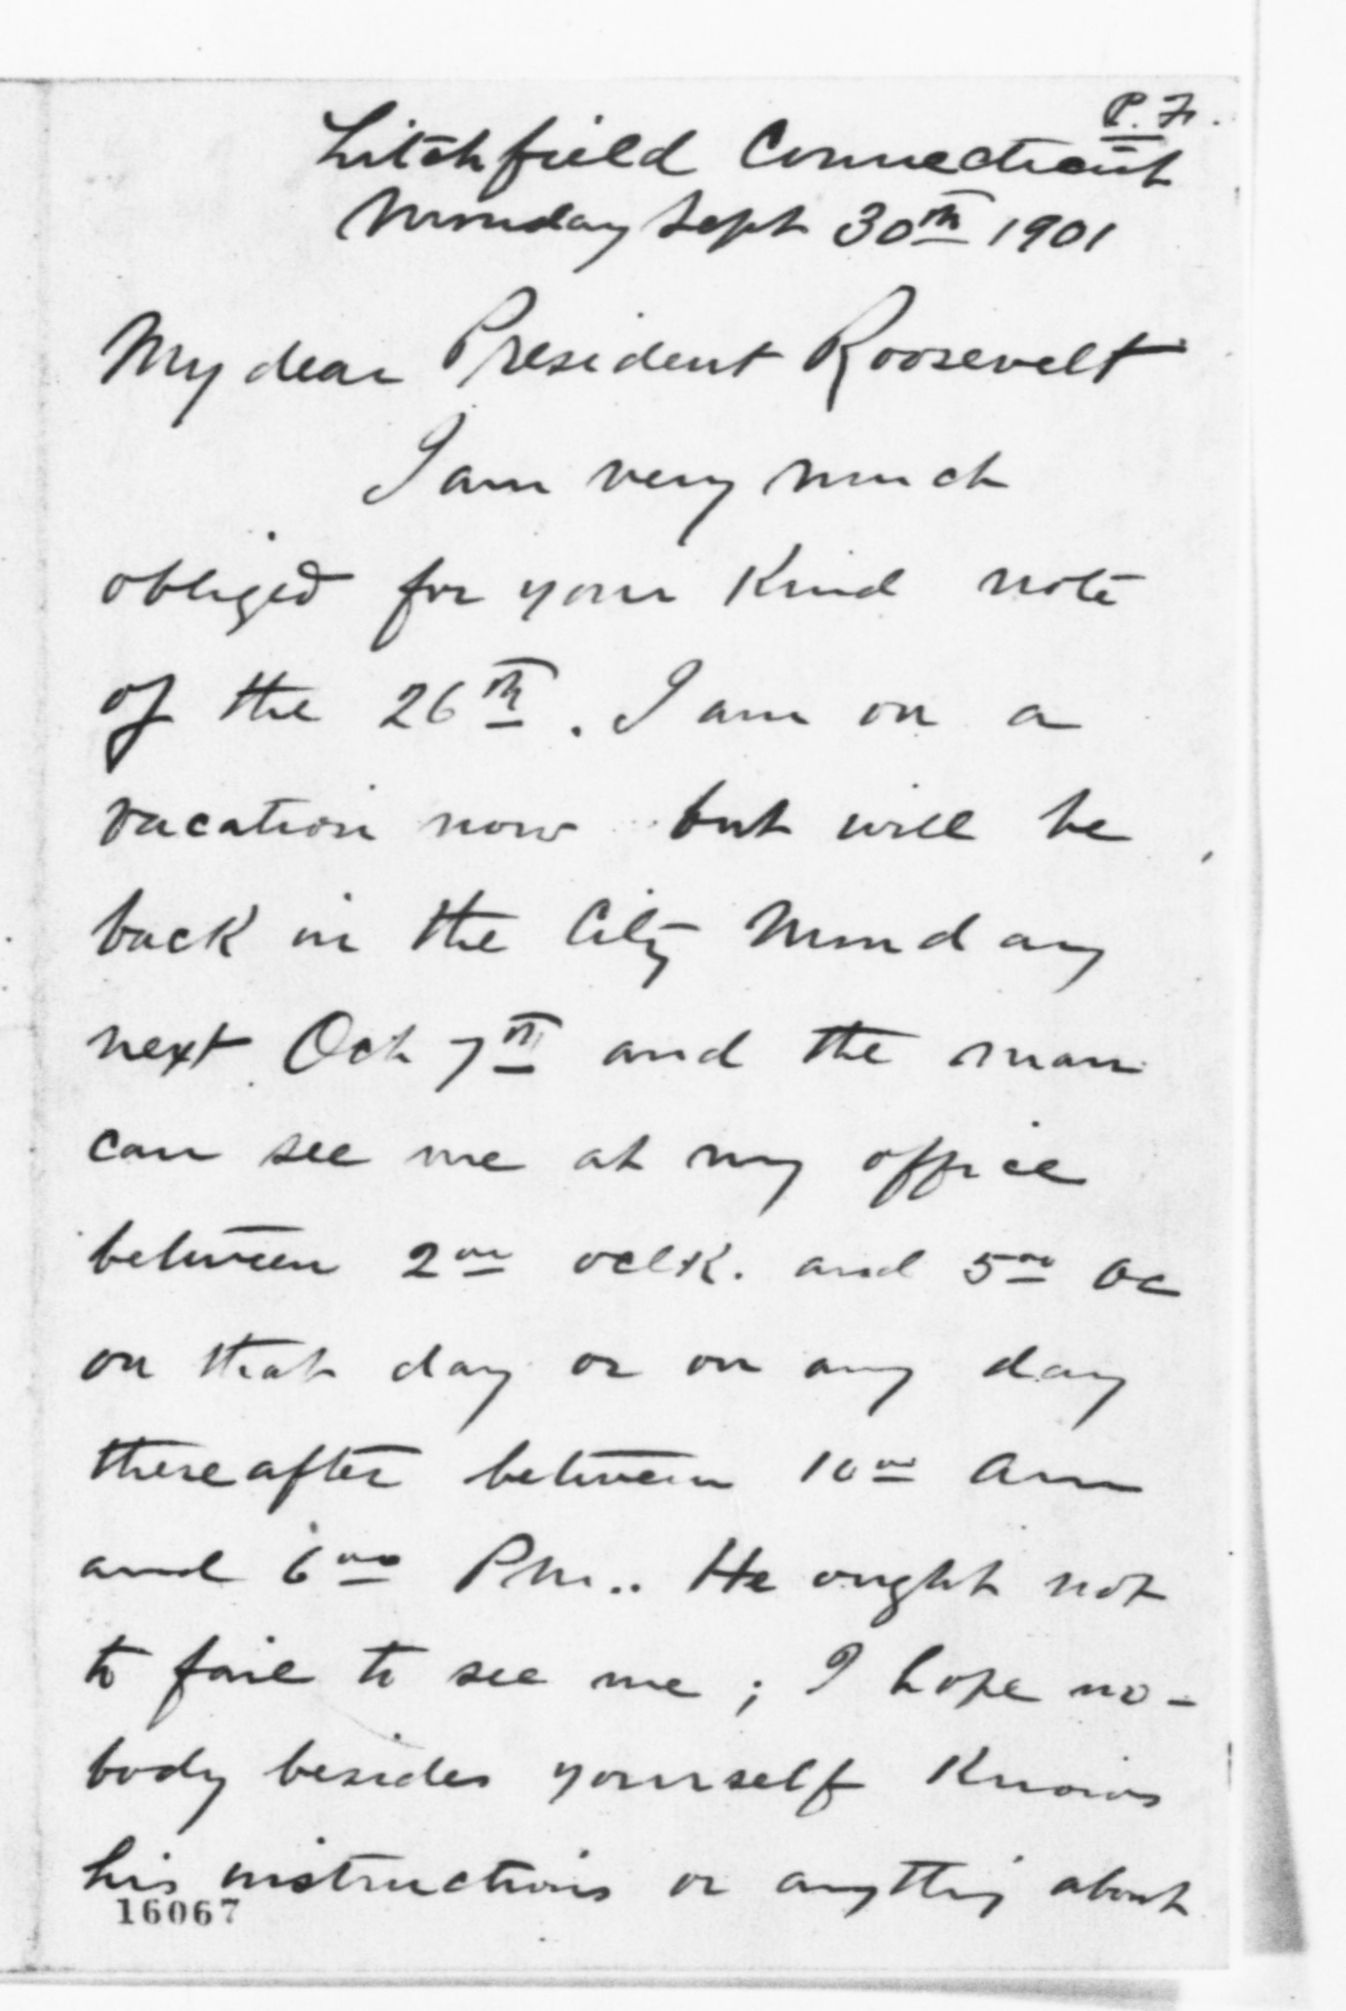 P. F.
Litchfield Connecticut
Monday Sept 30th 1901
My dear President Roosevelt
I am very much
obliged for your kind note
of the 26th. I am on a
vacation now but will be
back in the City Monday
next Oct 7th and the man
can see me at my office
between 2 oo oclk. and 5 oo oc
on that day or on any day
thereafter between 10 oo am
and 6 oo Pm.. He ought not
to fail to see me; I hope no-
body besides yourself knows
his instructions or anything about
16067